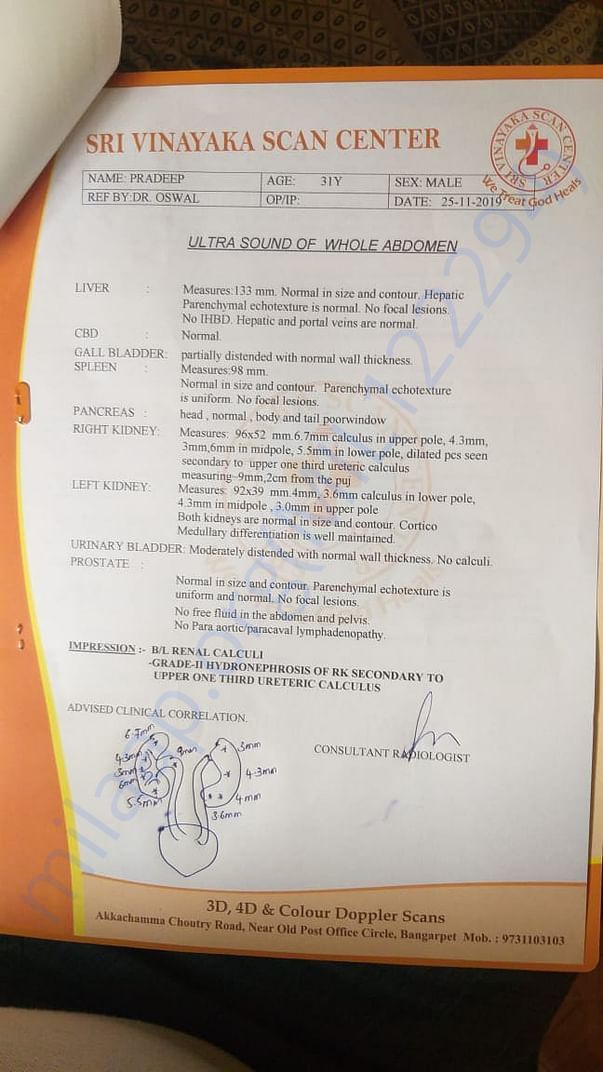 SRI VINAYAKA SCAN CENTER
SRI VINAYAKA SCAN CENTER
We Treat God Heals
NAME: PRADEEP AGE: 31Y SEX: MALE
REF BY:DR. OSWAL OP/IP: DATE: 25-11-2019
ULTRA SOUND OF WHOLE ABDOMEN
LIVER : Measures:133 mm. Normal in size and contour. Hepatic
Parenchymal echotexture is normal. No focal lesions.
No IHBD. Hepatic and portal veins are normal.
CBD : Normal.
GALL BLADDER: partially distended with normal wall thickness.
SPLEEN : Measures:98 mm.
Normal in size and contour. Parenchymal echotexture
is uniform. No focal lesions.
PANCREAS : head , normal , body and tail poorwindow
RIGHT KIDNEY: Measures: 96x52 mm.6.7mm calculus in upper pole, 4.3mm,
3mm,6mm in midpole, 5.5mm in lower pole, dilated pcs seen
secondary to upper one third ureteric calculus
measuring~9mm,2cm from the puj
LEFT KIDNEY: Measures: 92x39 mm.4mm, 3.6mm calculus in lower pole,
4.3mm in midpole , 3.0mm in upper pole
Both kidneys are normal in size and contour. Cortico
Medullary differentiation is well maintained.
URINARY BLADDER: Moderately distended with normal wall thickness. No calculi.
PROSTATE :
Normal in size and contour. Parenchymal echotexture is
uniform and normal. No focal lesions.
No free fluid in the abdomen and pelvis.
No Para aortic/paracaval lymphadenopathy.
IMPRESSION :- B/L RENAL CALCULI
-GRADE-II HYDRONEPHROSIS OF RK SECONDARY TO
UPPER ONE THIRD URETERIC CALCULUS
ADVISED CLINICAL CORRELATION.
CONSULTANT RADIOLOGIST
6.7mm
4.3mm
3mm
6mm
5.5mm
9mm
3mm
4.3mm
4mm
3.6mm
3D, 4D & Colour Doppler Scans
Akkachamma Choutry Road, Near Old Post Office Circle, Bangarpet Mob. : 9731103103